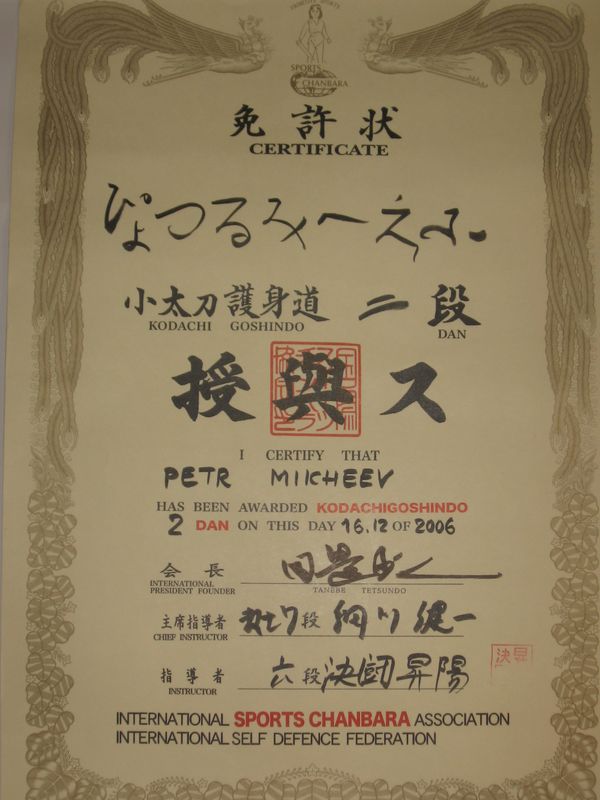 SPORTS
CHANBARA
免許状
CERTIFICATE
ぴょつるみーえふ
小太刀護身道 二段
KODACHI GOSHINDO DAN
授與ス
I CERTIFY THAT
PETR MIKCHEEV
HAS BEEN AWARDED KODACHIGOSHINDO
2 DAN ON THIS DAY 16.12 OF 2006
会長
INTERNATIONAL
PRESIDENT FOUNDER
TANABE TETSUNDO
主席指導者 七段 細川健一
CHIEF INSTRUCTOR
指導者 六段 決闘昇陽
INSTRUCTOR
決昇
INTERNATIONAL SPORTS CHANBARA ASSOCIATION
INTERNATIONAL SELF DEFENCE FEDERATION